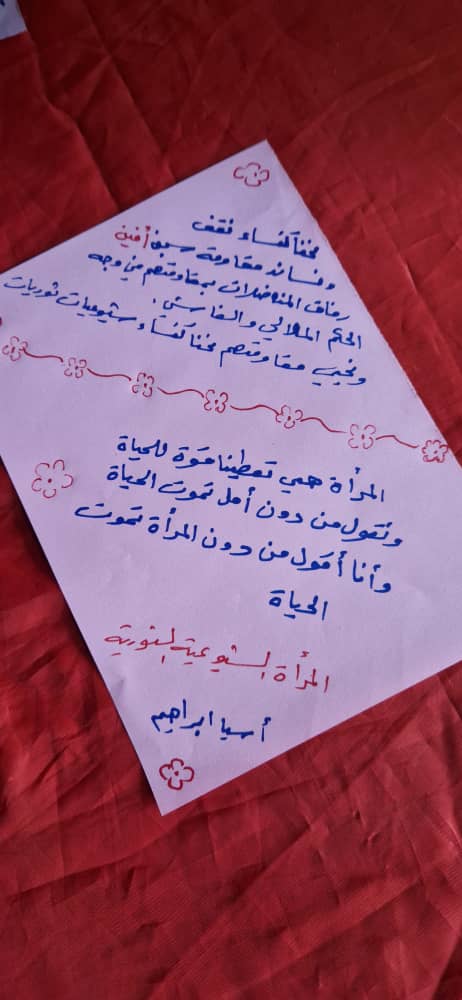 نحنا كنساء نقف
ونساند مقاومة سجن أفين
رفاق المناضلات بمقاومتهم من وجه
الحكم الملالي والفاشي.
ونحيي مقاومتهم نحنا كنساء شيوعيات ثوريات
المرأة هي تعطينا قوة للحياة
ونقول من دون أمل تموت الحياة
وأنا أقول من دون المرأة تموت
الحياة
المرأة الشيوعية الثورية
أسيا ابراهيم